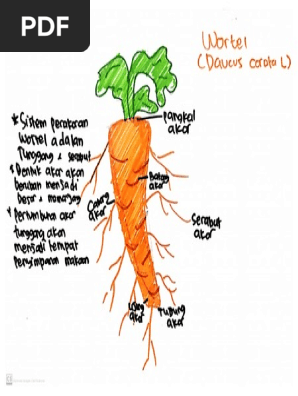 PDF
Wortel
(Daucus carota L)
Pangkal
akar
* Sistem perakaran
Wortel adalah
Tunggang & serabut
* Bentuk akar akan
berubah menjadi
besar & memanjang
* Pertumbuhan akar
tunggang akan
menjadi tempat
penyimpanan makanan
Batang
akar
Cabang
akar
Serabut
akar
Ujung
akar
Tudung
akar